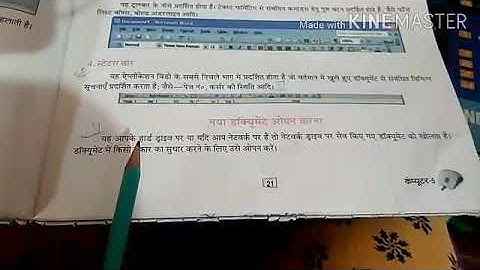 यह टूलबार के नीचे प्रदर्शित होता है। टेक्स्ट फॉर्मेटिंग से संबंधित कमांडस हेतु यह बटन प्रदर्शित होते है। जैसे फॉन्ट
लिस्ट बॉक्स, बोल्ड अंडरलाइन आदि।
Made with KINEMASTER
हलाती है।
4. स्टेटस बार
यह ऐप्लीकेशन विंडो के सबसे निचले भाग में प्रदर्शित होता है जो वर्तमान में खुले हुए डॉक्यूमेंट से संबंधित विभिन्न
सूचनाएँ प्रदर्शित करता है; जैसे—पेज नं०, कर्सर की स्थिति आदि।
नया डॉक्यूमेंट ओपन करना
यह आपके हार्ड ड्राइव पर या यदि आप नेटवर्क पर है तो नेटवर्क ड्राइव पर सेव किए गए डॉक्यूमेंट को खोलता है।
डॉक्यूमेंट में किसी कार का सुधार करने के लिए उसे ओपन करें।
21
कंप्यूटर-5